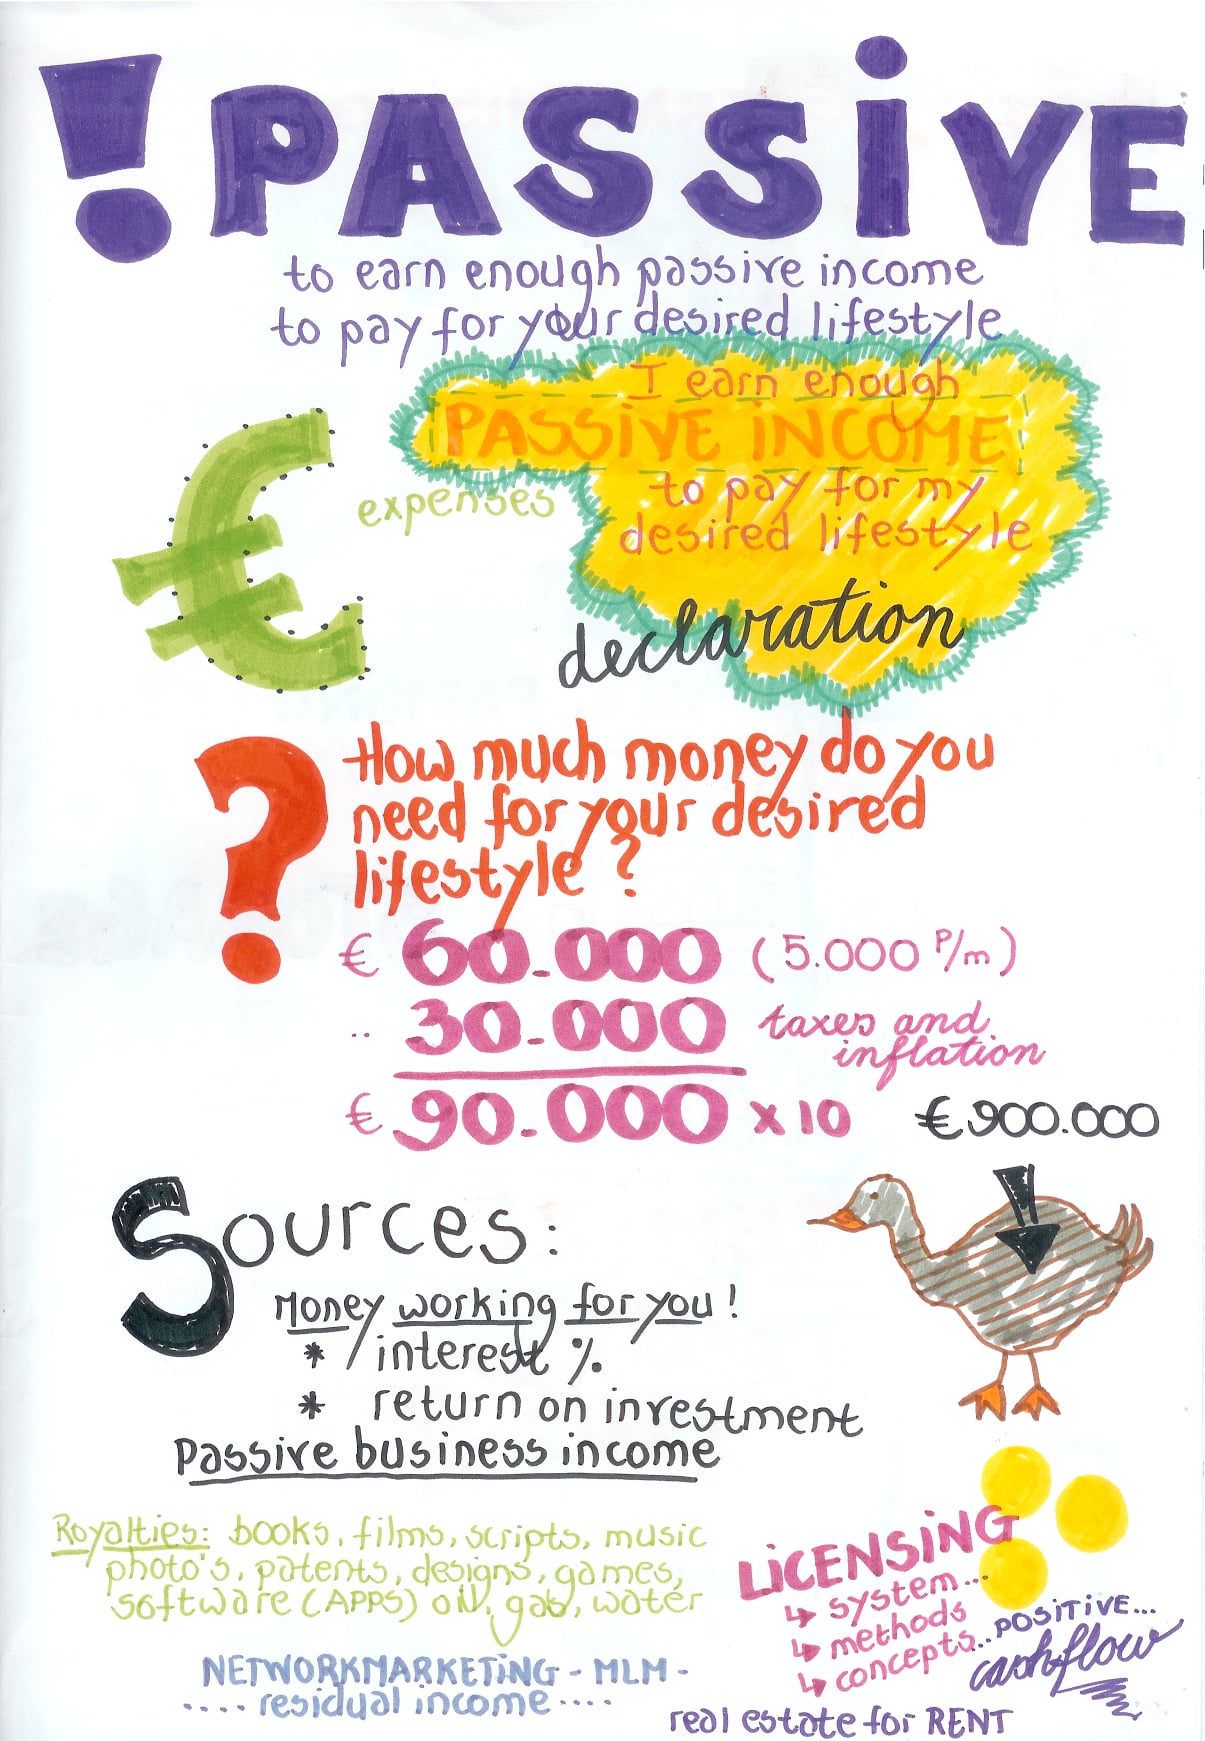 ! PASSiVE
to earn enough passive income
to pay for your desired lifestyle
I earn enough
PASSiVE iNCOME
to pay for my
desired lifestyle
€
expenses
declaration
? How much money do you
need for your desired
lifestyle?
€ 60.000 (5.000 P/m)
.. 30.000 taxes and
inflation
€ 90.000 x 10 € 900.000
Sources:
Money working for you!
* / interest %
* return on investment
Passive business income
Royalties: books, films, scripts, music
photo's, patents, designs, games,
software (APPS) oil, gas, water
LiCENSiNG
↳ system...
↳ methods
↳ concepts...
POSiTiVE...
cashflow
NETWORKMARKETiNG - MLM -
.... residual income ....
real estate for RENT